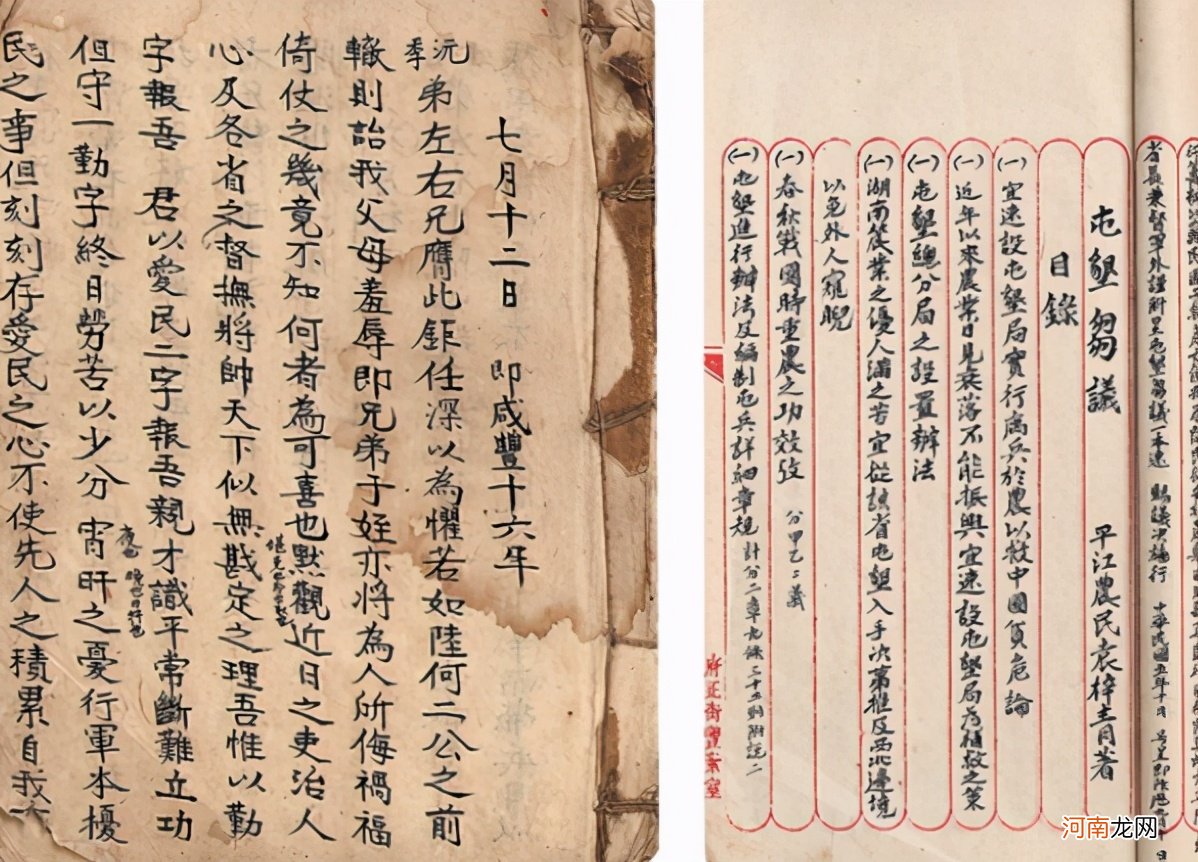 七月十二日　即咸豐十六年
沅季弟左右兄膺此鉅任深以為懼若如陸何二公之前
轍則詒我父母羞辱即兄弟子姪亦將為人所侮禍福
倚仗之幾竟不知何者為可喜也默觀近日之吏治人
心及各省之督撫將帥天下似無戡定之理吾惟以勤
字報吾　君以愛民二字報吾親才識平常斷難立功
但守一勤字終日勞苦以少分宵旰之憂行軍本擾
民之事但刻刻存愛民之心不使先人之積累自我
屯墾芻議　平江農民袁梓青著
目錄
(一)宜速設屯墾局實行寓兵於農以救中國貧危論
(一)近年以來農業日見衰落不能振興宜速設屯墾局為補救之策
(一)屯墾總分局之設置辦法
(一)湖南農業之優人滿之苦宜從該省屯墾入手次第推及西北邊境
以免外人窺睨
(一)春秋戰國時重農之功效攷　分甲乙二義
(一)屯墾進行辦法及編制屯兵詳細章規
河南龙网